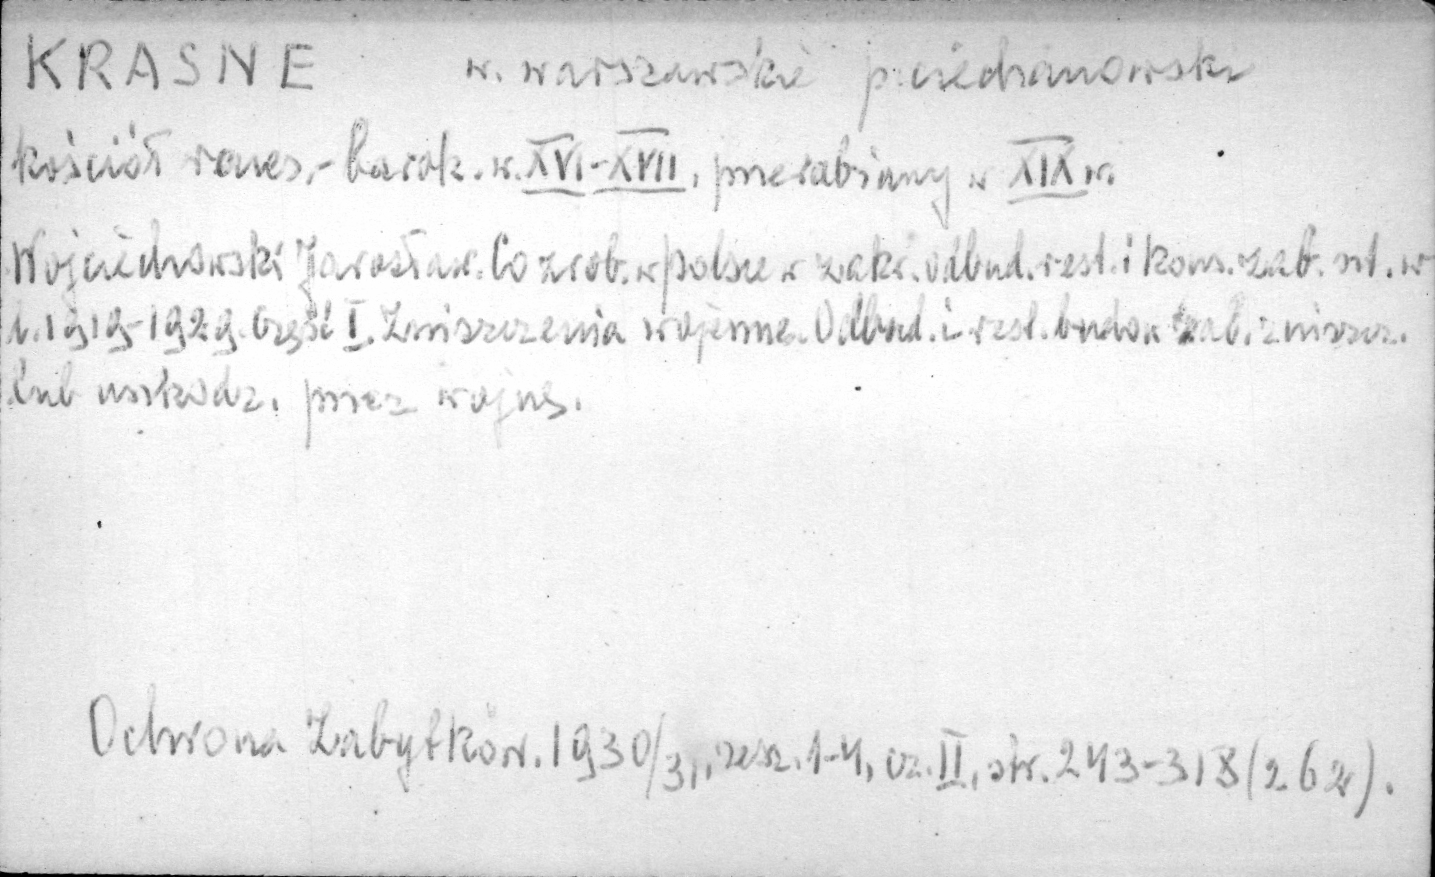 KRASNE w. warszawskie p. ciechanowski
kościół renes.-barok. w. XVI-XVII, przerabiany w XIX w.
Wojciechowski Jarosław. Co zrob. w Polsce w zakr. odbud. rest. i kons. zab. szt. w
l. 1919-1929. Część I. Zniszczenia wojenne. Odbud. i rest. budow. zab. zniszcz.
lub uszkodz. przez wojnę.
Ochrona Zabytków. 1930/31, zesz. 1-4, cz. II, str. 243-318 (262).